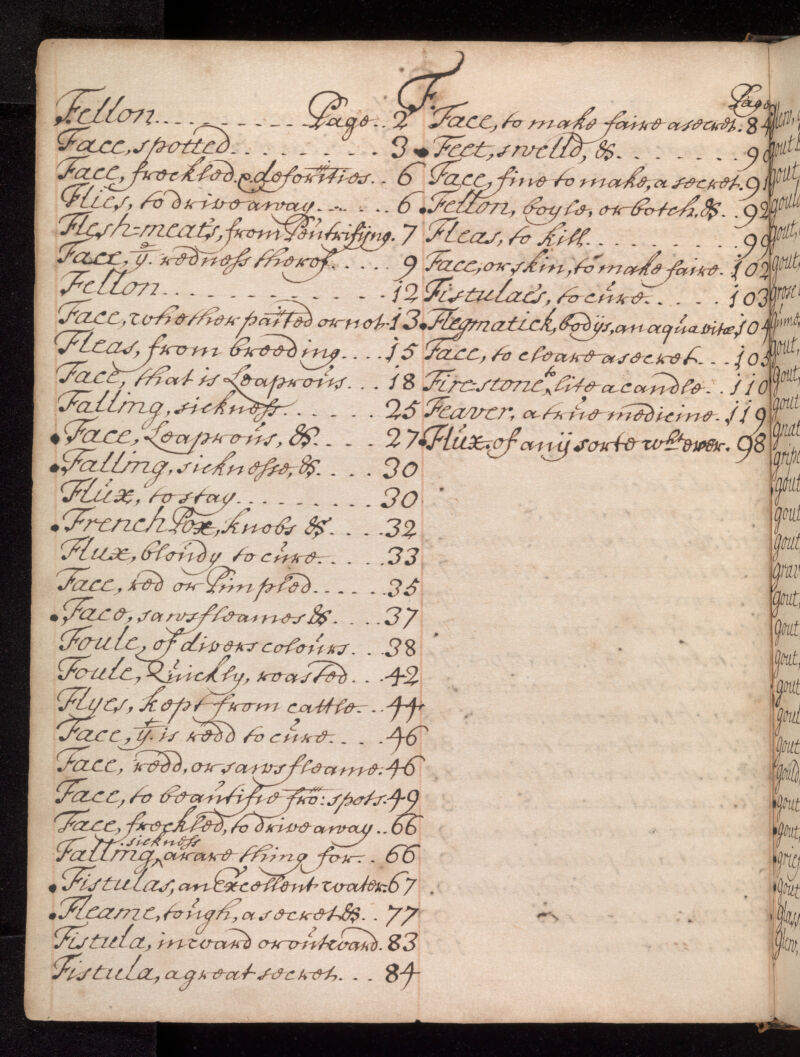 F.
Fellon. Page. 2
Face, spotted. 3
Face, freckled & deformities. 6
Flies, to drive away. 6
Flesh=meats, from Peutrifijng. 7
Face, yͤ. redness therof. 9
Fellon. 12
Face, whether paīted or not. 13
Fleas, from breeding. 15
Face, that is Leaprous. 18
Falling, sickness. 25
Face, Leaprous, &. 27
Falling, sicknesse, &. 30
Flux, to stay. 30
French Pox, knobs &. 32
Flux, bloudy to cure. 33
Face, red or Pimpled. 35
Face, sawsfleames &. 37
Foule, of divers colours. 38
Foule, Quickly, roasted. 42
Flyes, kept from cattle. 44
Face, yͭ. is redd to cure. 46
Face, redd, or sawsfleame. 46
Face, to beautifie frō: spots. 49
Face, freckled, to drive away. 66
Falling, sickness a rare thing for. 66
Fistulas, an Excellent water. 67
Fleame, tough, a secret &. 77
Fistula, inward or outward. 83
Fistula, a great secret. 84
Page
Face, to make faire a secret. 84
Feet, swelld, &. 90
Face, fine to make, a secret. 91
Fellon, boyle, or botch. &. 92
Fleas, to kill. 99
Face, or skin, to make faire. 102
Fistulaes, to cure. 103
Flegmatick, bodys, an aqua vitæ, 104
Face, to cleare a secret. 105
Fire-stone, to lite a candle. 110
Feaver, a true medicine. 119
Flux, of anij sorte wͪᵗ ever. 98